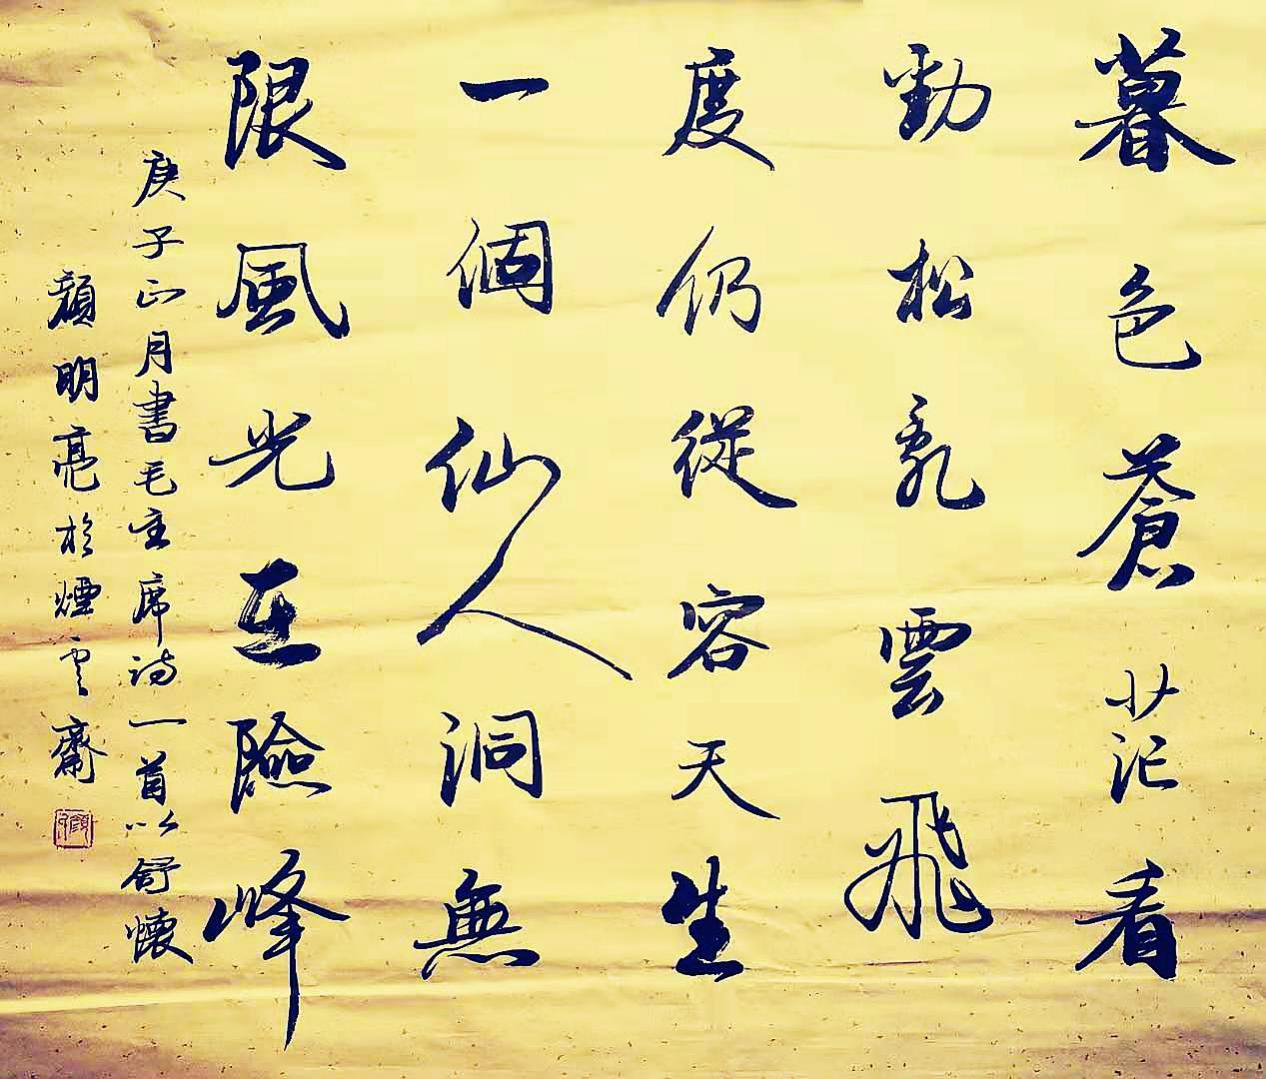 暮色蒼茫看
勁松亂雲飛
度仍從容天生
一個仙人洞無
限風光在險峰
庚子正月書毛主席詩一首以舒懷
顏明亮於煙雲齋